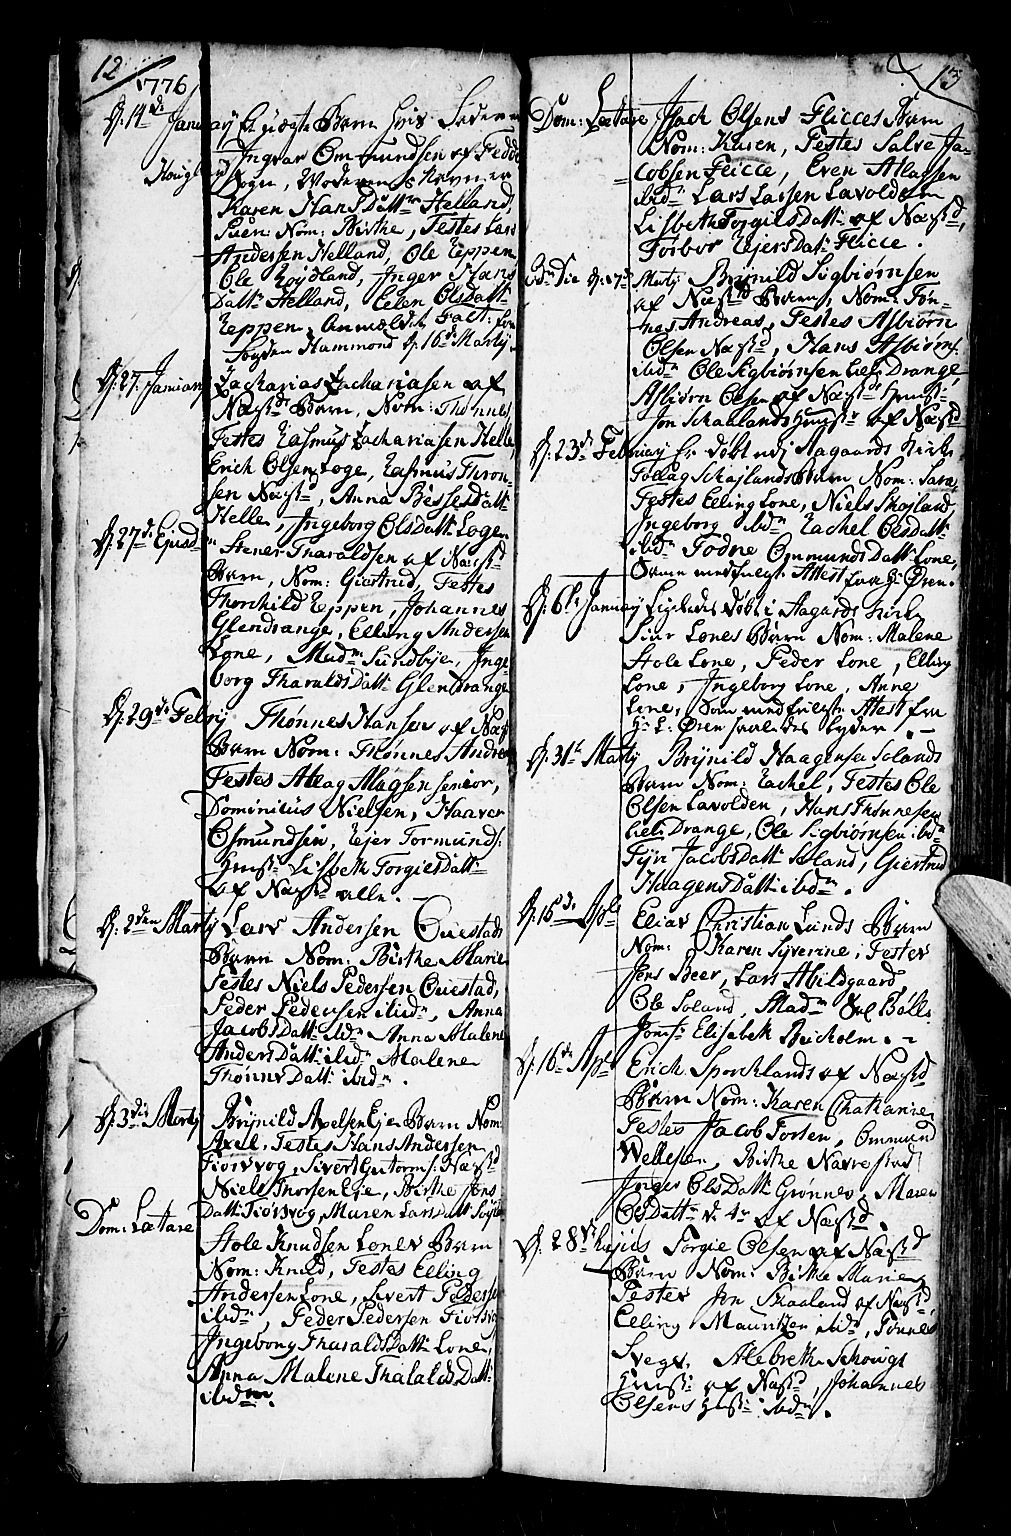 12
1776
d: 14de January Et uægte Barn hvis Faderen
Ingvar Ommundsen af Fedde
Sogn, Moderens Navn er
Karen Hans Datter Helland,
Nom: Birthe, Testes Lars
Andersen Helland, Ole Eppen
Ole Røydland, Inger Hans
Datter Helland, Elen Olsdatt:
Eppen. Anmældt
Hammond d: 16de Martij
d: 27. Januarij Zacharias Zachariasen af
Næssd Barn, Nom: Thønnes
Testes Rasmus Zachariasen Helle,
Erich Olsen Loge, Rasmus Thron-
sen Næssd, Anna Bessesdatt:
Helle, Ingeborg Olsdatt: Logen
d: 27de Ejusdm Stener Tharaldsen af Næssd
Barn, Nom: Giertrud, Testes
Thorchild Eppen, Johannes
Glendrange, Elling Andersen
Lone, Madm Sundbye, Inge-
borg Tharalds Datt: Glendrange
d: 29de Febrij Thønnes Hansen af Næss
Barn Nom: Thønnes Andreas
Testes Atlag Atlagsen senior,
Dominicus Nielsen, Haaver
Osmundsen, Ejer Tormunds:
Lisbeth Torgiesdatt:
af Næssd alle.
d: 2den Martij Lars Andersen Qviestads
Barn Nom: Birthe Marie
Testes Niels Pedersen Qviestad,
Peder Pedersen ibidm, Anna
Jacobs Datt: ibdm Anna Malene
Anders Datt: ibidm Malene
Thønnes Datt: ibidm.
d: 3die Martij Brynild Axelsen Eje Barn Nom:
Axel, Testes Hans Andersen
Fiørsvog, Sivert Gutorms: Næssd
Niels Thorsen Eje, Birthe Jons
Datt: Fiørsvog, Maren Larsdatt:
Dom: Lætare
Stole Knudsen Lones Barn
Nom: Knud, Testes Elling
Andersen Lone, Sivert Pederse
ibidm, Peder Pedersen Fiørsvog
Ingeborg Tharalds Datt: Lone,
Anna Malene Thalalds Datt:
ibidm.
13
Dom: Lætare Jach Olsens Flicces Barn
Nom: Karen, Testes Salve Ja-
cobsen Flicce, Even Atlagsen
ibidm Lars Larsen Lavolden
Lisbeth Torgilsdatt: af Næssd,
Torbor Ejersdatt: Flicce.
Eodm Die d: 17de Martij Brynild Sigbiørnsen
af Næssd Barn, Nom: Tøn-
nes Andreas, Testes Asbiørn
Olsen Næssd, Hans Asbiørns:
ibidm Ole Sigbiørnsen Liel: Drange,
Asbiørn Olsen af Næssd
Jon Schaalands af Næssd
d: 23de Februarij Er døbt udj Aagaards Kirke
Tollag Schøjlands Barn Nom: Sara,
Testes Elling Lone, Niels Skøjland,
Ingeborg ibdm Rachel Olsdatt:
ibidm Todne Ommunds Datt: Lone,
Som medfulgte Attest fra Hr: Øren.
d: 6te January Ligeledes døbt i Aagards Kirke
Siur Lones Barn Nom: Malene
Stole Lone, Peder Lone, Elling
Lone, Ingeborg Lone, Anne
Lone, Som medfulgte Attest fra
Hr: L: Øren saaledes lyder.
d: 31te Martij Brynild Haagensen Solands
Barn Nom: Rachel, Testes Ole
Olsen Lavolden, Hans Thønnesen
Liel: Drange, Ole Sigbiørnsen ibdm
Tyri Jacobsdatt: Soland, Giertrud
Haagens Datt: ibidm.
d: 16de Apl Elias Christian Lunds Barn
Nom: Karen Syverine, Testes
Jens Beer, Lars Abildgaard
Ole Soland, Madm Bølle
Jomfr Elisabeth Buchholm.
d: 16de Apl Erich Sporcklands af Næssd
Barn Nom: Karen Chatharine
Testes Jacob Torsen, Ommund
Wellesen, Birthe Narrestad
Inger Ols Datt: Grønnes, Maren
Olsdatt: af Næssd.
d: 28de Ejus Torgie Olsen af Næssd
Barn Nom: Birthe Marie,
Testes Jon Skaaland af Næssd,
Elling Mauritzen ibidm, Tønnes
Svege, Alebrethe Schougs
af Næssd, Johannes
Olsens ibidm.